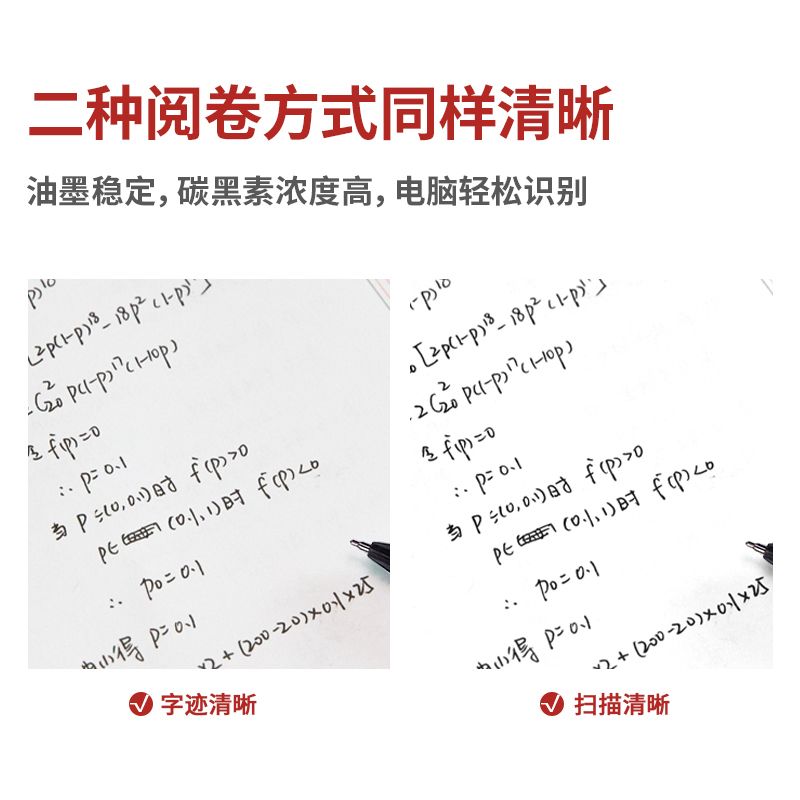 二种阅卷方式同样清晰
油墨稳定，碳黑素浓度高，电脑轻松识别
-p)¹⁸
[2p(1-p)¹⁸-18p²(1-p)¹⁷]
=2C₂₀² p(1-p)¹⁷(1-10p)
令 f'(p)=0
∴ p=0.1
当 P=(0,0.1)时 f'(p)>0
p∈ (0.1,1)时 f'(p)<0
∴ p₀=0.1
得 p=0.1
×2+(200-20)×0.1×25
字迹清晰
-p)¹⁸
[2p(1-p)¹⁸-18p²(1-p)¹⁷]
2C₂₀² p(1-p)¹⁷(1-10p)
令 f'(p)=0
∴ p=0.1
当 P=(0,0.1)时 f'(p)>0
p∈ (0.1,1)时 f'(p)<0
∴ p₀=0.1
得 p=0.1
×2+(200-20)×0.1×25
扫描清晰